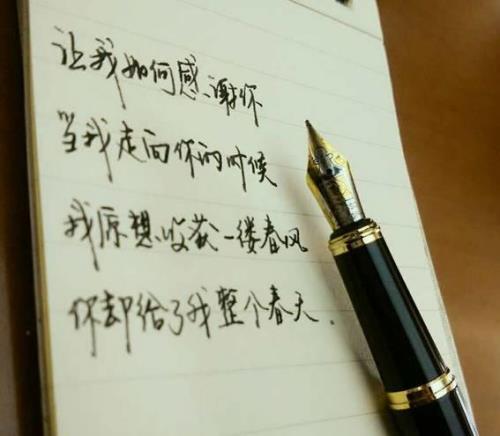 让我如何感谢你
当我走向你的时候
我原想收获一缕春风
你却给了我整个春天.